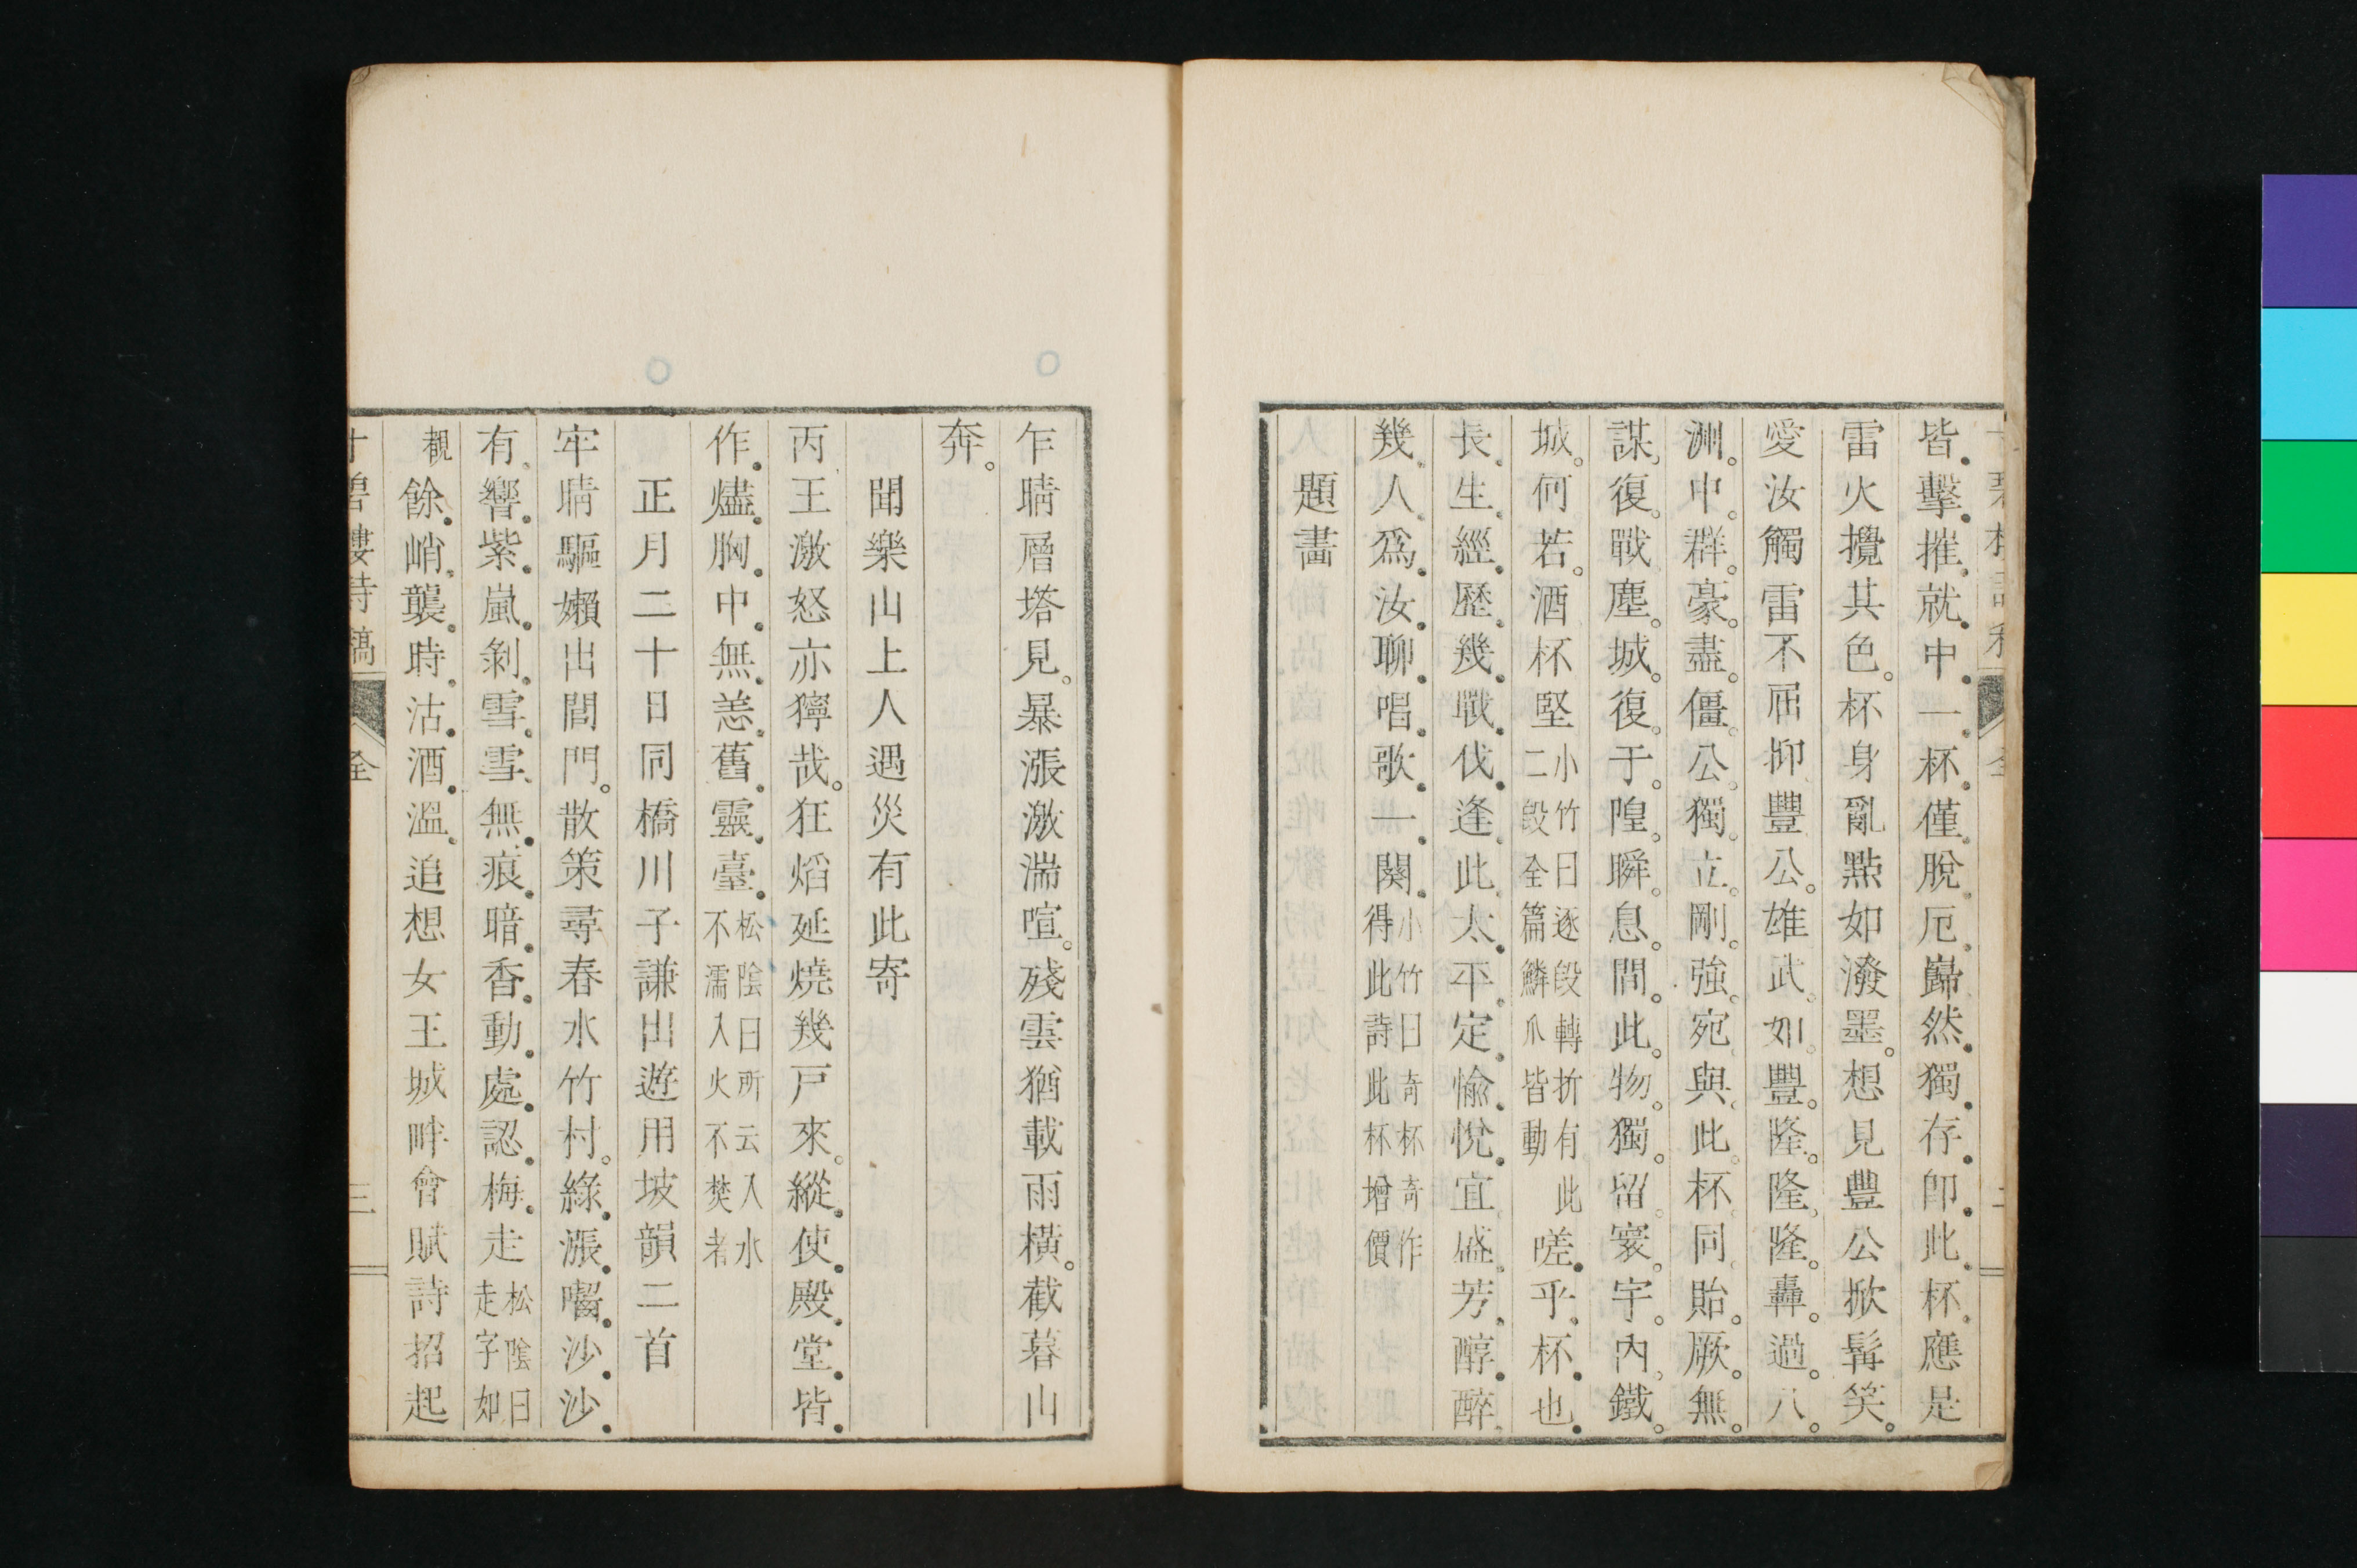 皆擊摧就中一杯僅脫厄巋然獨存卽此杯應是
雷火攪其色。杯身亂點如潑墨。想見豐公掀髯笑。
愛汝觸雷不屈抑豐公。雄武。如豐。隆。隆。隆。轟。過。八。
洲。中。群。豪。盡。僵。公。獨。立。剛。強。宛與此杯同貽。厥。無。
謀。復。戰塵。城。復。于。隍。瞬。息。間。此。物。獨。留。寰。宇。內。鐵。
城。何若。酒杯堅
小竹曰逐段轉折有此
二毀全篇鱗爪皆動
嗟乎杯也
長生經歷幾戰伐逢此太平定愉悅宜盛芳醇醉
幾人爲汝聊唱歌一闋
小竹曰奇杯奇作
得此詩此杯增價
題畵
乍晴層塔見。暴漲激湍喧。殘雲猶載雨橫。截暮山
奔。
聞樂山上人遇災有此寄
丙王激怒亦獰哉。狂焰延燒幾戸來。縱使殿堂皆
作燼胸中無恙舊靈臺
松陰曰所云入水
不濡入火不焚者
正月二十日同橋川子謙出遊用坡韻二首
牢晴驅嬾出閭門。散策尋春水竹村。綠漲囓沙沙
有響紫嵐剝雪雪無痕暗香動處認梅走
松陰曰
走字如
覩
餘峭襲時沽酒溫追想女王城畔會賦詩招起
樓詩稿
全
三